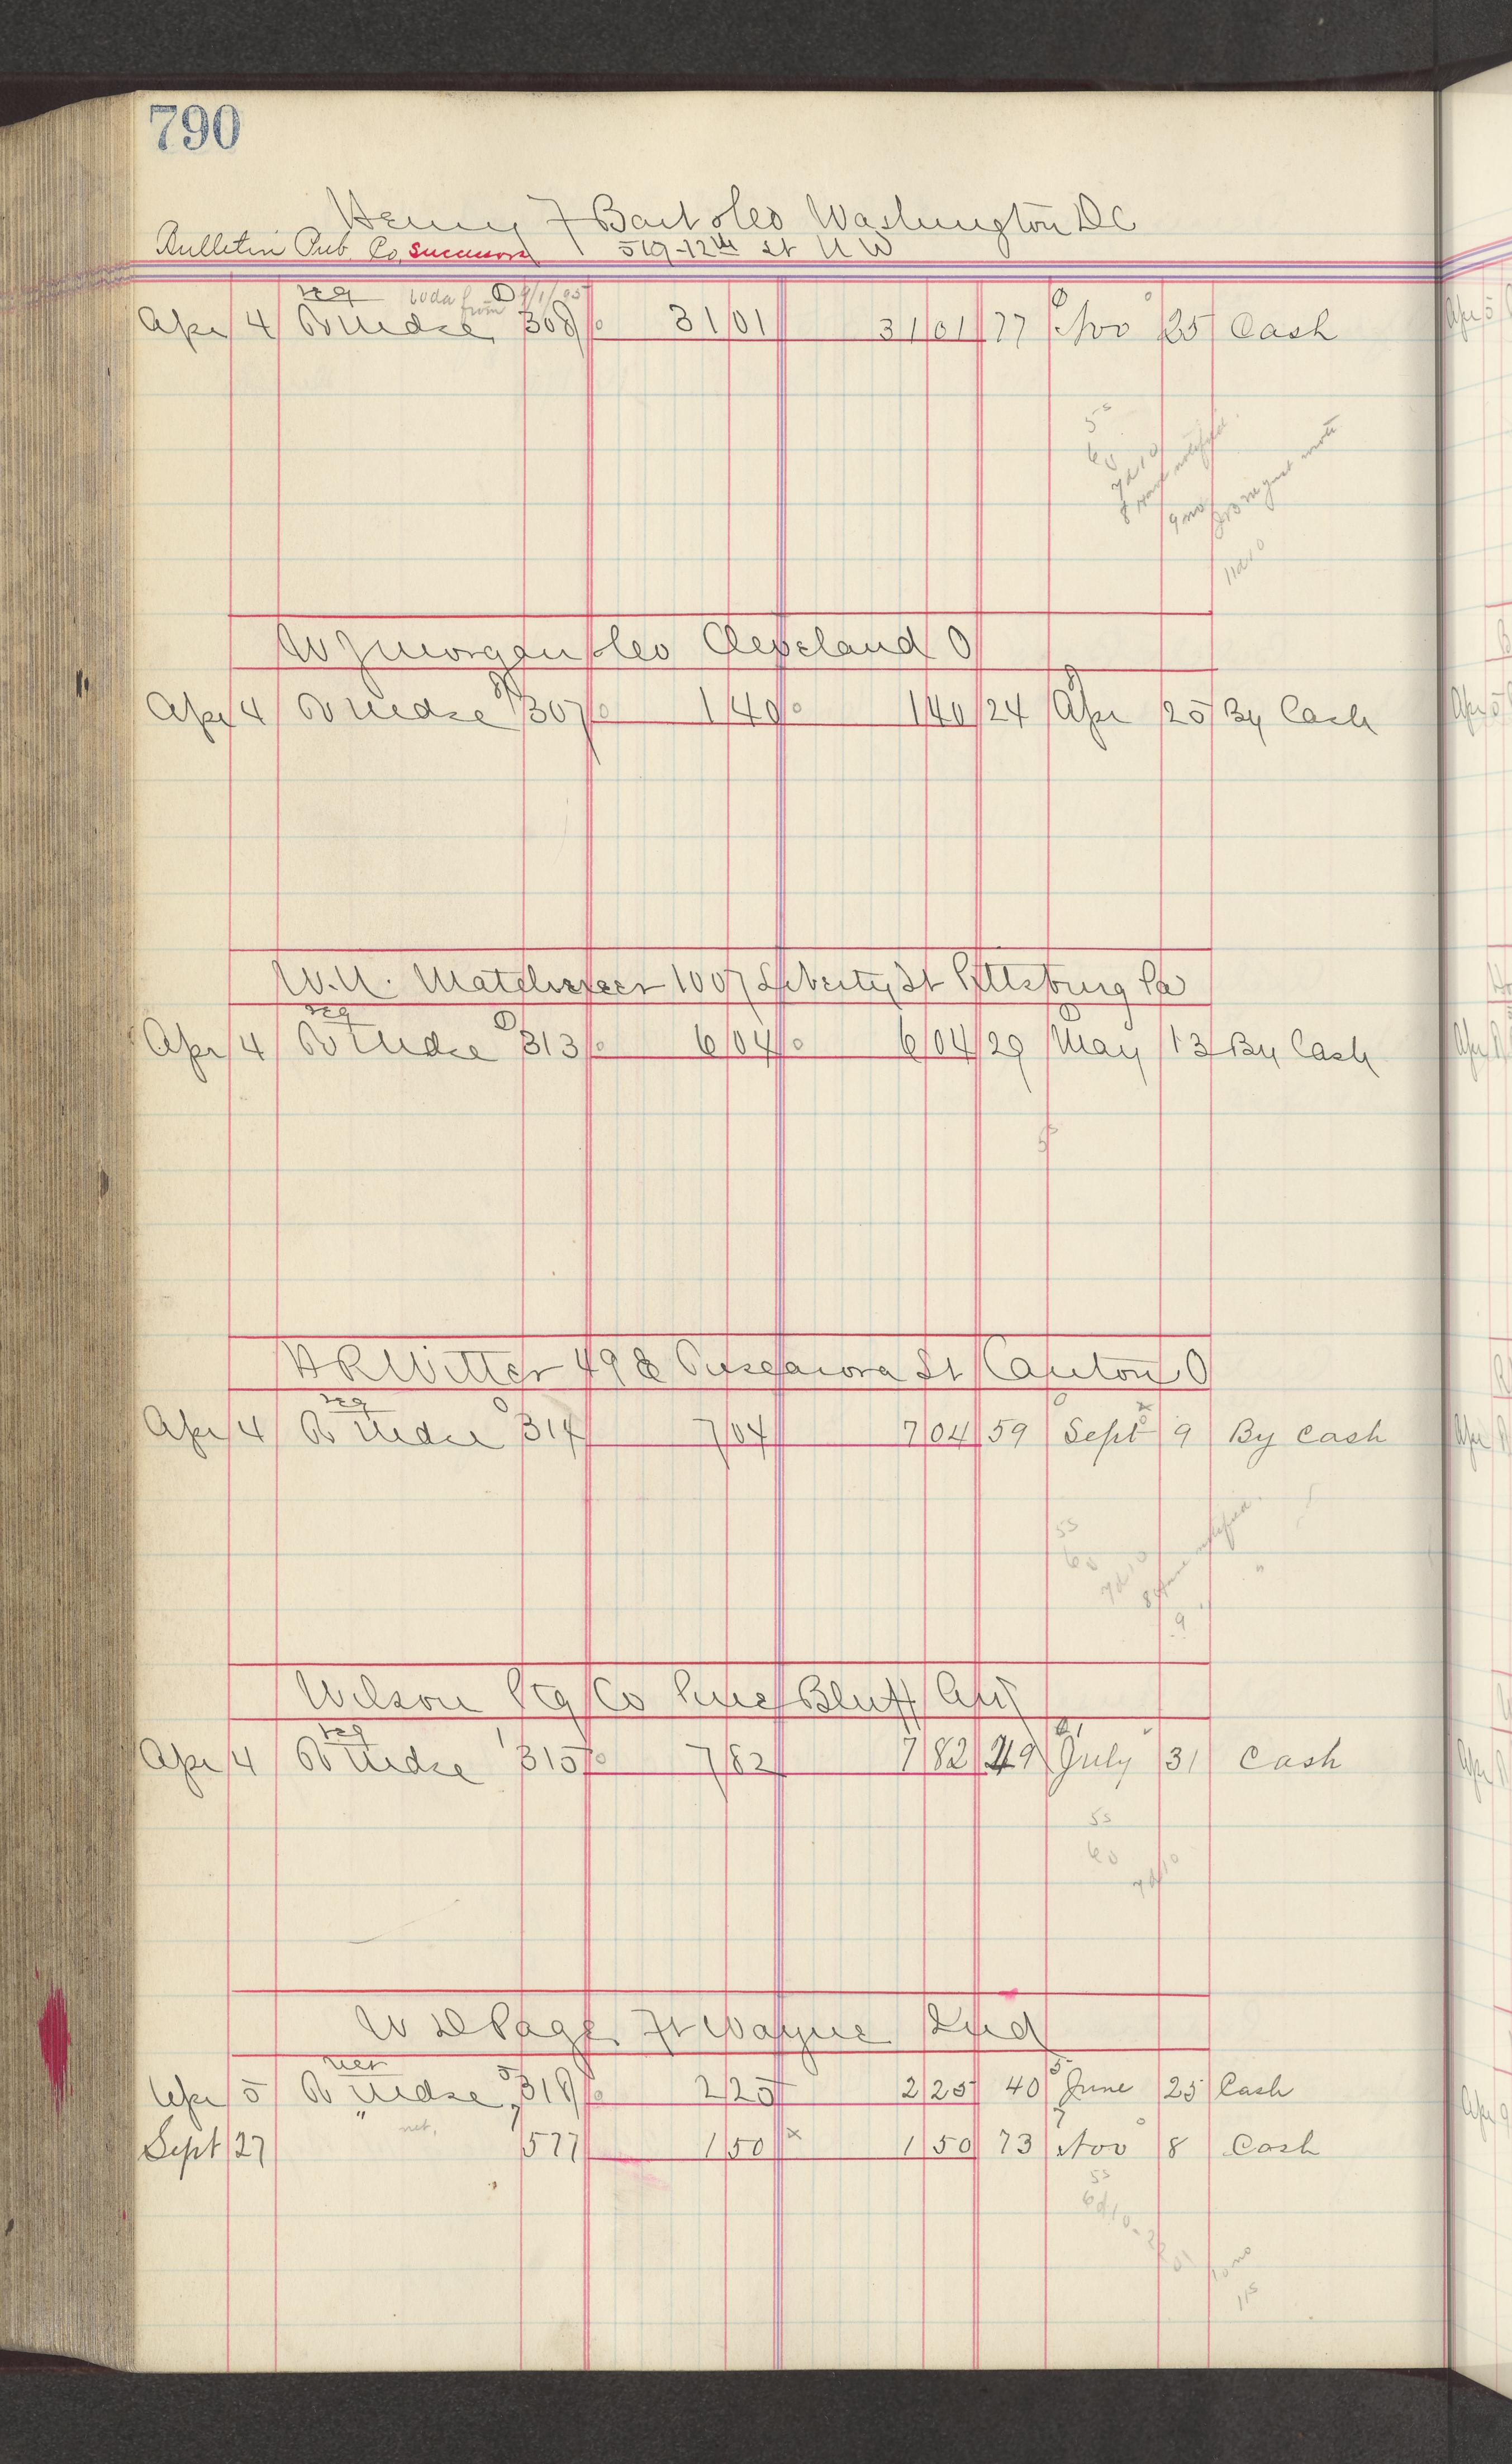 790
Henry F Bart & Co Washington DC
Bulletin Pub. Co. Successors 519-12th St N W
reg 60 da from 9/1/05
Apr 4 To Mdse 308 31 01 31 01 77 Nov 25 Cash
5s
60
7d10
8 have notified
9 no
11d10
W J Morgan & Co Cleveland O
Apr 4 To Mdse 307 1 40 140 24 Apr 25 By Cash
1007 Liberty St Pittsburg Pa
reg
Apr 4 To Mdse 313 6 04 6 04 29 May 13 By Cash
5s
H R Witter 49 E Tuscarora St Canton O
reg
Apr 4 To Mdse 314 7 04 7 04 59 Sept 9 By Cash
5s
60
7d10
8 have notified
9
Wilson Ptg Co Pine Bluff Ark
reg
Apr 4 To Mdse 315 7 82 7 82 49 July 31 Cash
5s
60
7d10
W D Page Ft Wayne Ind
net
Apr 5 To Mdse 318 2 25 2 25 40 June 25 Cash
Sept 27 " net. 577 1 50 1 50 73 Nov 8 Cash
5s
6d10
10 no
11s